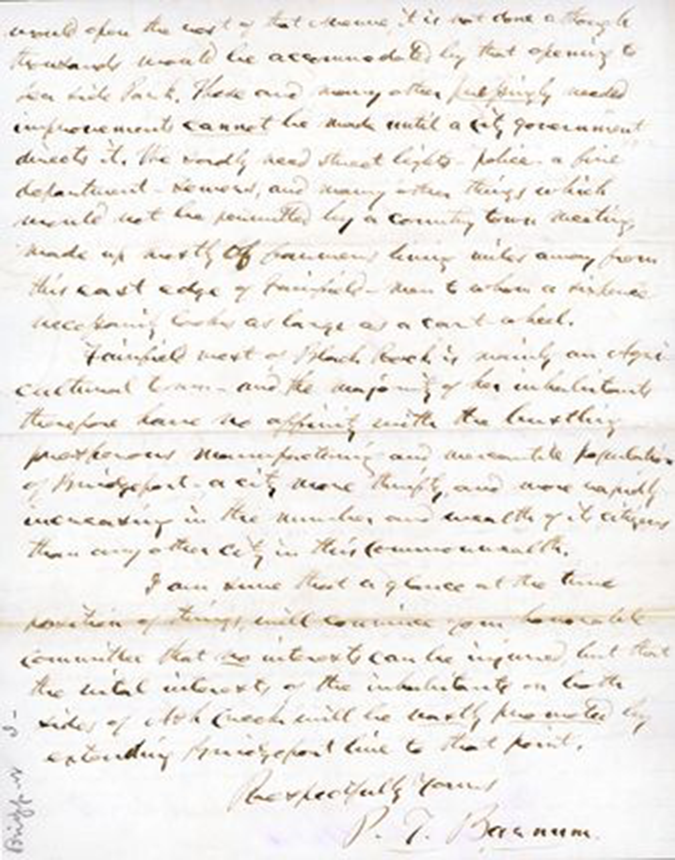 would open the rest of that avenue, it is not done although
thousands would be accommodated by that opening to
Sea Side Park. These and many other pressingly needed
improvements cannot be made until a city government
directs it. We sadly need street lights - police - a fire
department - sewers, and many other things which
would not be permitted by a country town meeting,
made up mostly of farmers living miles away from
this east edge of Fairfield - men to whom a sixpence
looks as large as a cart wheel.
Fairfield west of Black Rock is mainly an Agri-
cultural town - and the majority of her inhabitants
therefore have no affinity with the bustling
prosperous manufacturing and mercantile population
of Bridgeport - a city more thrifty, and more rapidly
increasing in the number and wealth of its citizens
than any other city in this Commonwealth.
I am sure that a glance at the true
position of things, will convince your honorable
committee that no interests can be injured, but that
the vital interests of the inhabitants on both
sides of Ash Creek will be vastly promoted by
extending Bridgeport line to that point.
Respectfully Yours
P. T. Barnum.